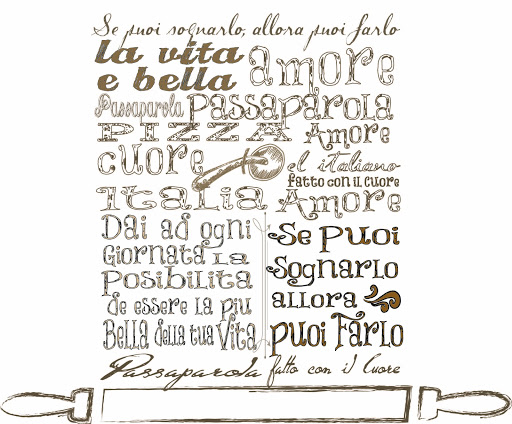 Se puoi sognarlo, allora puoi farlo
la vita
e bella
amore
Passaparola
Passaparola
PIZZA
Amore
cuore
el italiano
fatto con il cuore
Italia
Amore
Dai ad ogni
Giornata la
posibilita
de essere la piu
Bella della tua Vita
Se Puoi
Sognarlo
allora
puoi Farlo
Passaparola
fatto con il Cuore